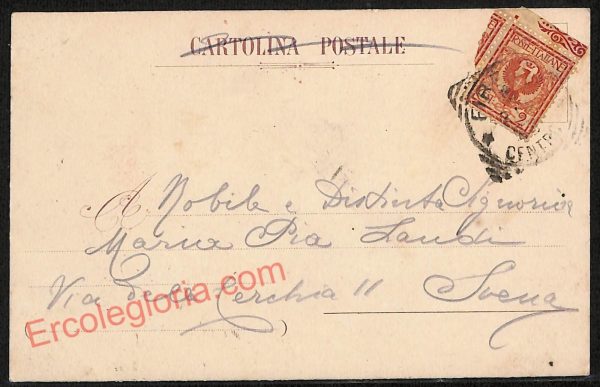 CARTOLINA POSTALE
POSTE ITALIANE
2
FIR
CENTR
A Nobile e Distinta Signorina
Maria Pia Landi
Via delle Cerchia 11 Siena
Ercolegloria.com